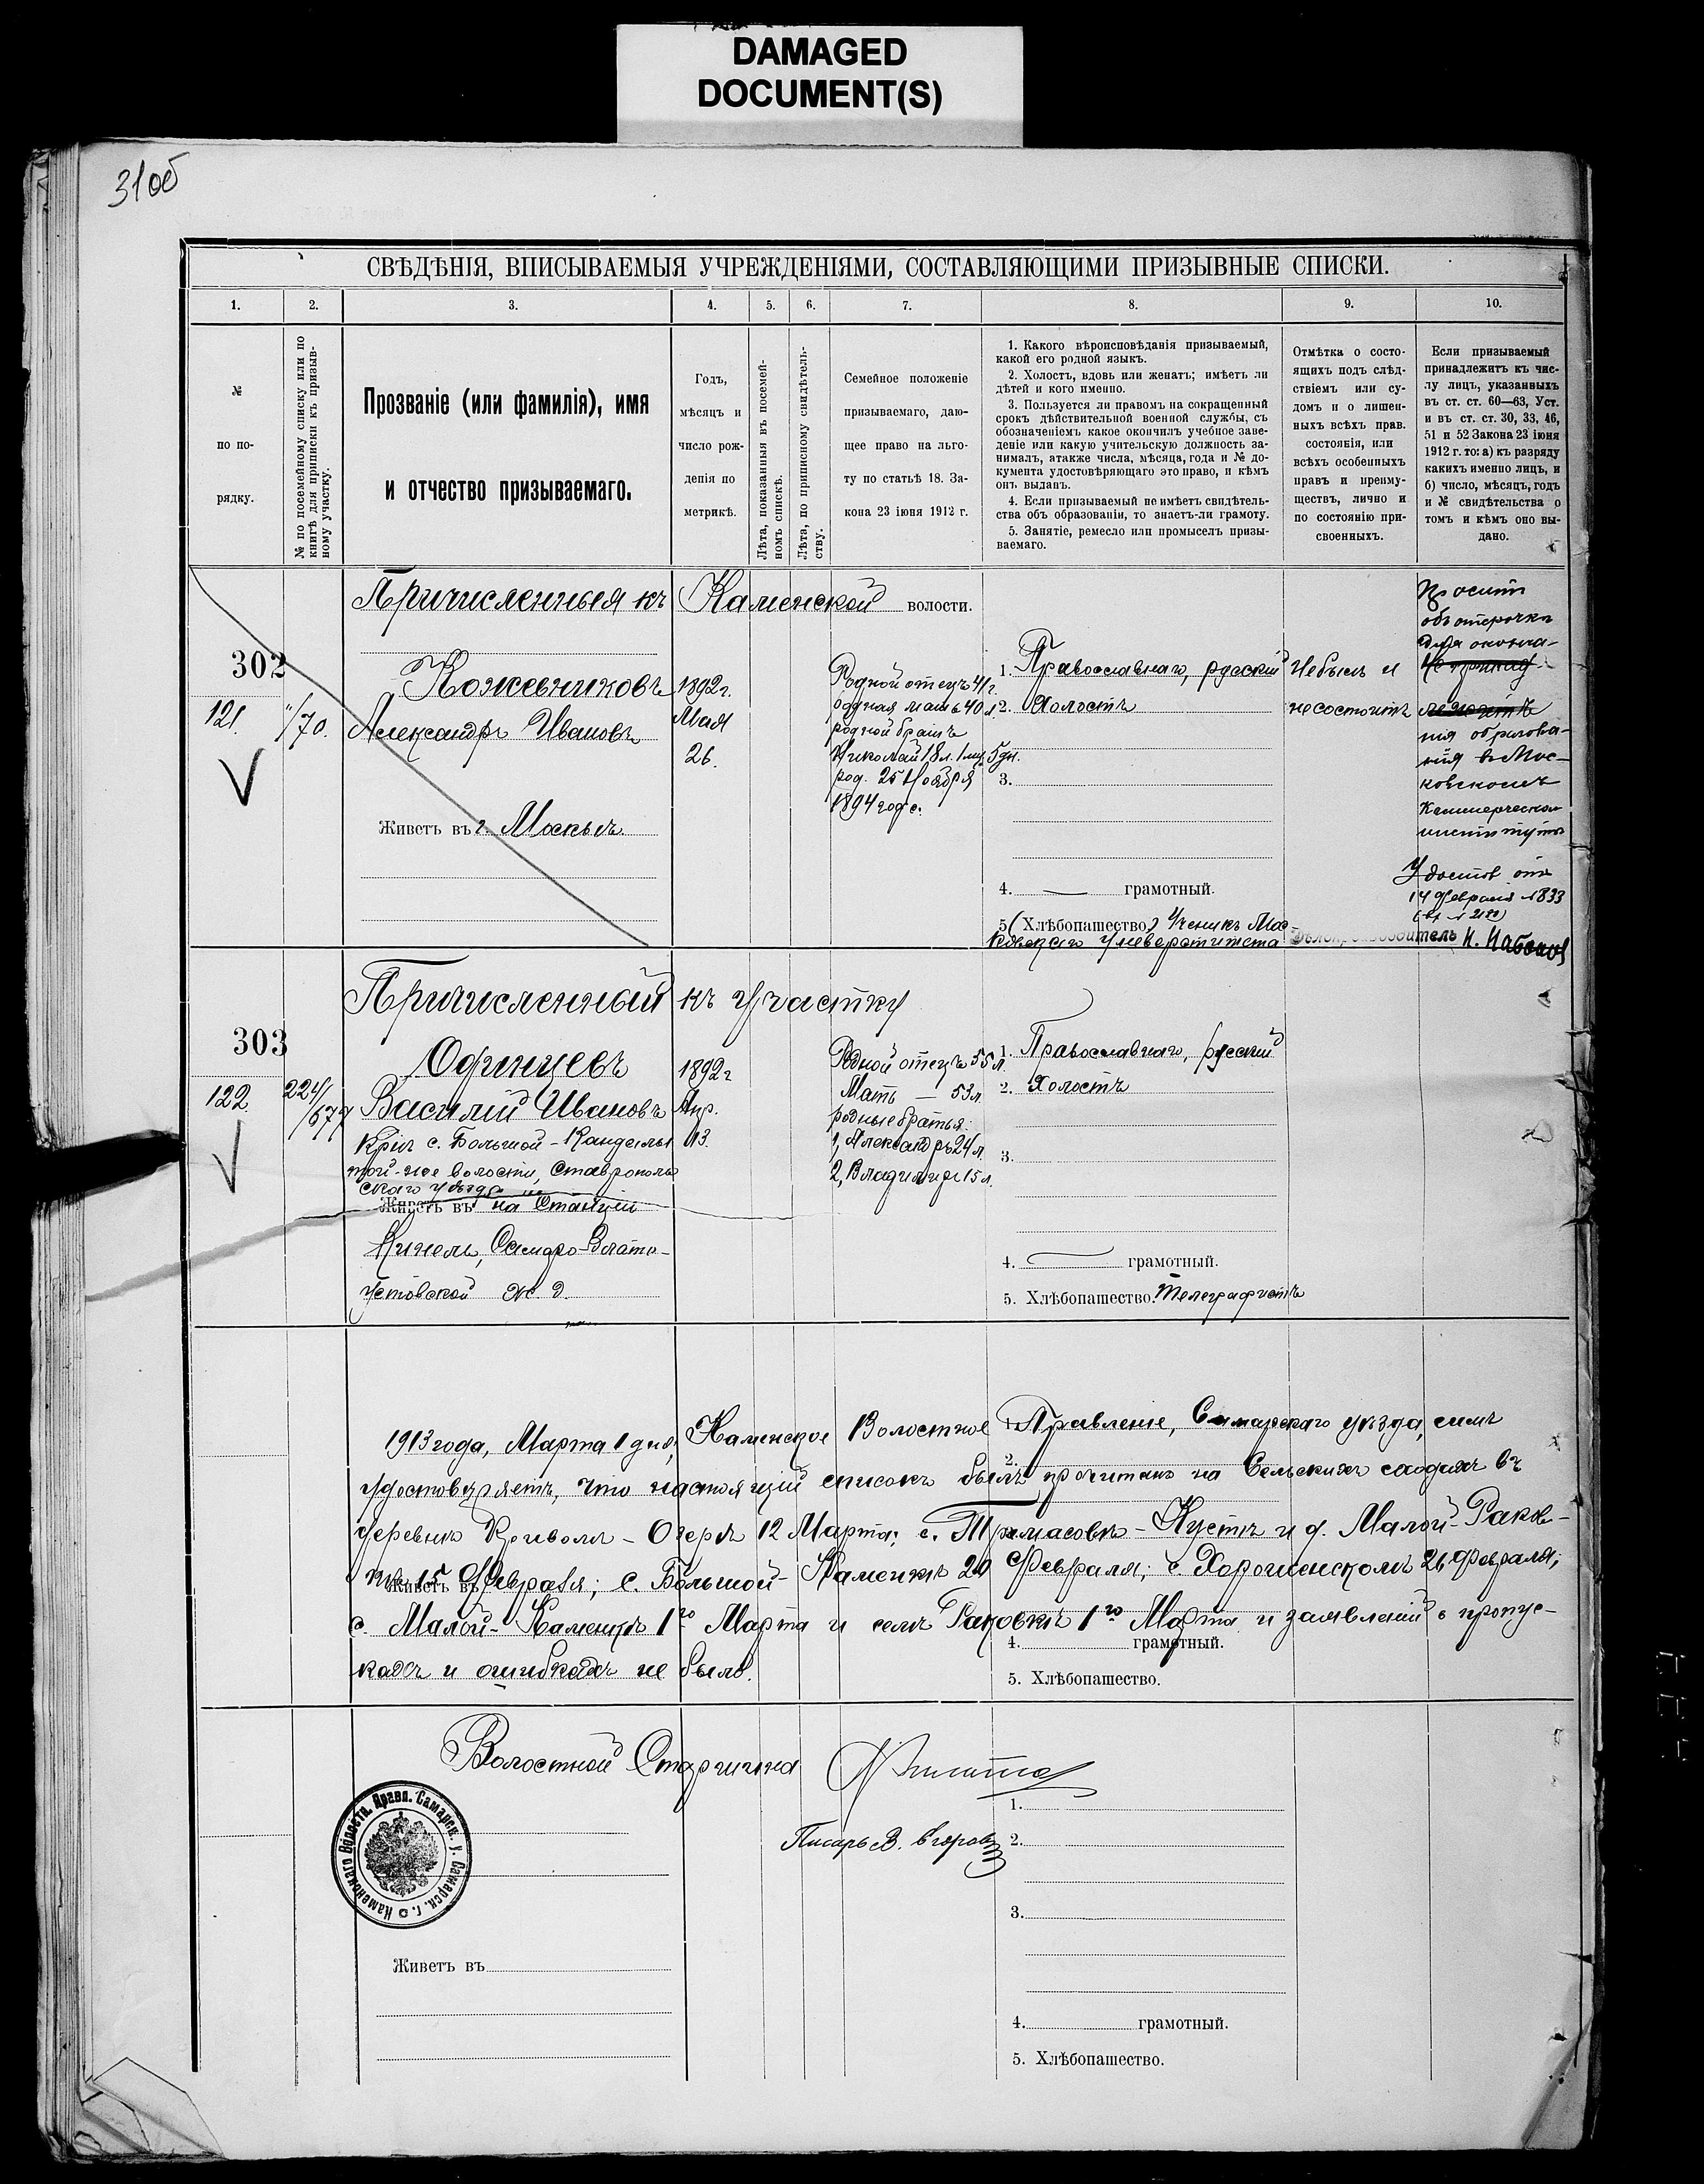 DAMAGED
DOCUMENT(S)
31об
СВѢДѢНІЯ, ВПИСЫВАЕМЫЯ УЧРЕЖДЕНІЯМИ, СОСТАВЛЯЮЩИМИ ПРИЗЫВНЫЕ СПИСКИ.
1. 2. 3. 4. 5. 6. 7. 8. 9. 10.
№
по по-
рядку.
№ по посемейному списку или по
книгѣ для приписки къ призыв-
ному участку.
Прозваніе (или фамилія), имя
и отчество призываемаго.
Годъ,
мѣсяцъ и
число рож-
денія по
метрикѣ.
Лѣта, показанныя въ посемей-
номъ спискѣ.
Лѣта, по приписному свидѣтель-
ству.
Семейное положеніе
призываемаго, даю-
щее право на льго-
ту по статьѣ 18. За-
кона 23 іюня 1912 г.
1. Какого вѣроисповѣданія призываемый,
какой его родной языкъ.
2. Холостъ, вдовъ или женатъ; имѣетъ ли
дѣтей и кого именно.
3. Пользуется ли правомъ на сокращенный
срокъ дѣйствительной военной службы, съ
обозначеніемъ какое окончилъ учебное заве-
деніе или какую учительскую должность за-
нималъ, атакже числа, мѣсяца, года и № до-
кумента удостовѣряющаго это право, и кѣмъ
онъ выданъ.
4. Если призываемый не имѣетъ свидѣтель-
ства объ образованіи, то знаетъ-ли грамоту.
5. Занятіе, ремесло или промыселъ призы-
ваемаго.
Отмѣтка о состо-
ящихъ подъ слѣд-
ствіемъ или су-
домъ и о лишен-
ныхъ всѣхъ прав.
состоянія, или
всѣхъ особенныхъ
правъ и преиму-
ществъ, лично и
по состоянію при-
своенныхъ.
Если призываемый
принадлежитъ къ чис-
лу лицъ, указанныхъ
въ ст. ст. 60—63, Уст.
и въ ст. ст. 30, 33, 46,
51 и 52 Закона 23 іюня
1912 г. то: а) къ разряду
какихъ именно лицъ, и
б) число, мѣсяцъ, годъ
и № свидѣтельства о
томъ и кѣмъ оно вы-
дано.
Причисленныя къ Каменской волости.
302
121.
"/70.
Кожевниковъ
Александръ Ивановъ
Живетъ въ г. Москвѣ
1892 г.
Мая
26.
Родной отецъ 41 г.
родная мать 40 л.
родной братъ
Николай 18 л. 1 мц. 5 дн.
род. 25 Ноября
1894 года.
1. Православнаго, русский
2. Холостъ
3.
4. — грамотный.
5 (Хлѣбопашество) Ученикъ Мос-
ковскаго Университета
Не былъ и
не состоитъ
Проситъ
объ отсрочкѣ
для оконча-
нія образова-
нія въ Мос-
ковскомъ
Коммерческом
институтѣ
Удостов отъ
14 февраля 1833
Дѣлопроизводитель
Причисленный къ участку
303
122.
224/
/677
Одинцевъ
Василій Ивановъ
Крік с. Большой-Кандалы
той-же волости, Ставрополь
скаго уѣзда
Живетъ въ на Станціи
Кинель, Самаро-Злато-
устовской ж. д.
1892 г
Апр.
13.
Родной отецъ 55 л.
Мать — 53 л
родные братья:
1, Александръ 24 л.
2, Владиміръ 15 л.
1. Православнаго, русский
2. Холостъ
3.
4. грамотный.
5. Хлѣбопашество. Телеграфистъ
1913 года, Марта 1 дня, Каменское Волостное Правленіе, Самарскаго уѣзда, симъ
удостовѣряетъ, что настоящій списокъ былъ прочитанъ на Сельскихъ сходахъ въ
деревнѣ Кривомъ-Озерѣ 12 Марта; с. Термасовкѣ-Кустъ и д. Малой-Ракѣв-
кѣ 15 Февраля; с. Большой-Каменкѣ 20 Февраля; с. Хорошенскомъ 26 Февраля;
с. Малой-Каменкѣ 1го Марта и селѣ Раковкѣ 1го Марта и заявленій о пропус-
кахъ и ошибкахъ не было.
1.
2.
Живетъ въ
4. грамотный.
5. Хлѣбопашество.
Волостной Старшина
Писарь В. Егоровъ
Каменскаго Волостн. Правл. Самарск. у. Самарск. г.
Живетъ въ
1.
2.
3.
4. грамотный.
5. Хлѣбопашество.